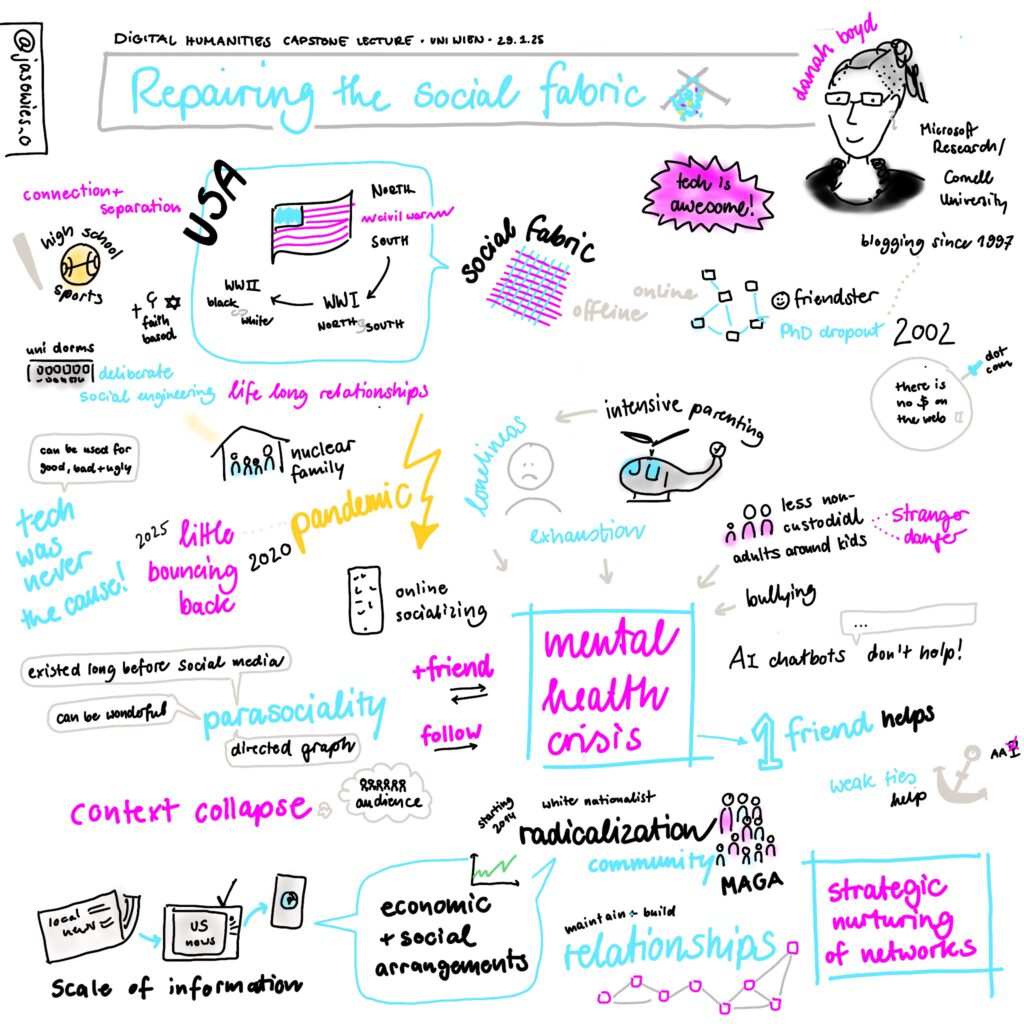 @jasowies_o
DIGITAL HUMANITIES CAPSTONE LECTURE · UNI WIEN · 29.1.25
Repairing the social fabric
danah boyd
Microsoft
Research/
Cornell
University
blogging since 1997
connection+
separation
high school
sports
faith
based
uni dorms
deliberate
social engineering
life long relationships
USA
NORTH
civil war
SOUTH
WWI
NORTH & SOUTH
WWII
black
white
social fabric
tech is
awesome!
online
offline
friendster
PhD dropout
2002
dot
com
there is
no $ on
the web
can be used for
good, bad + ugly
tech
was
never
the cause!
nuclear
family
pandemic
2020
2025
little
bouncing
back
loneliness
intensive parenting
exhaustion
less non-
custodial
adults around kids
stranger
danger
bullying
...
AI chatbots don't help!
online
socializing
+friend
follow
mental
health
crisis
1 friend helps
weak ties
help
AA
existed long before social media
can be wonderful
parasociality
directed graph
context collapse
audience
starting
2014
white nationalist
radicalization
community
MAGA
local
news
US
news
scale of information
economic
+ social
arrangements
maintain + build
relationships
strategic
nurturing
of networks